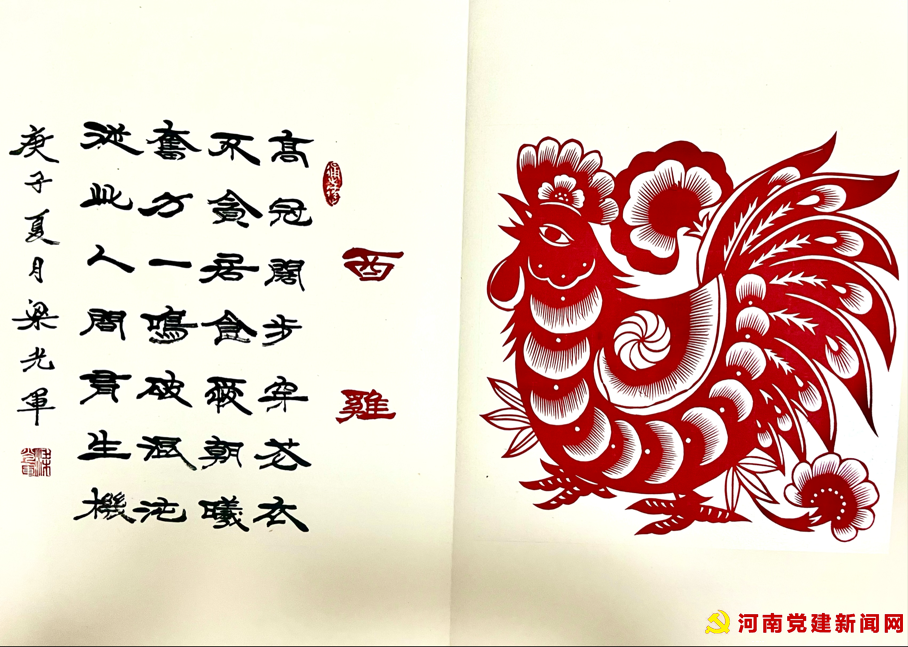 酉雞
高冠闊步穿花衣
不貪居食朝曦
奮力一鳴破混沌
從此人間有生機
庚子夏月梁光軍
河南党建新闻网